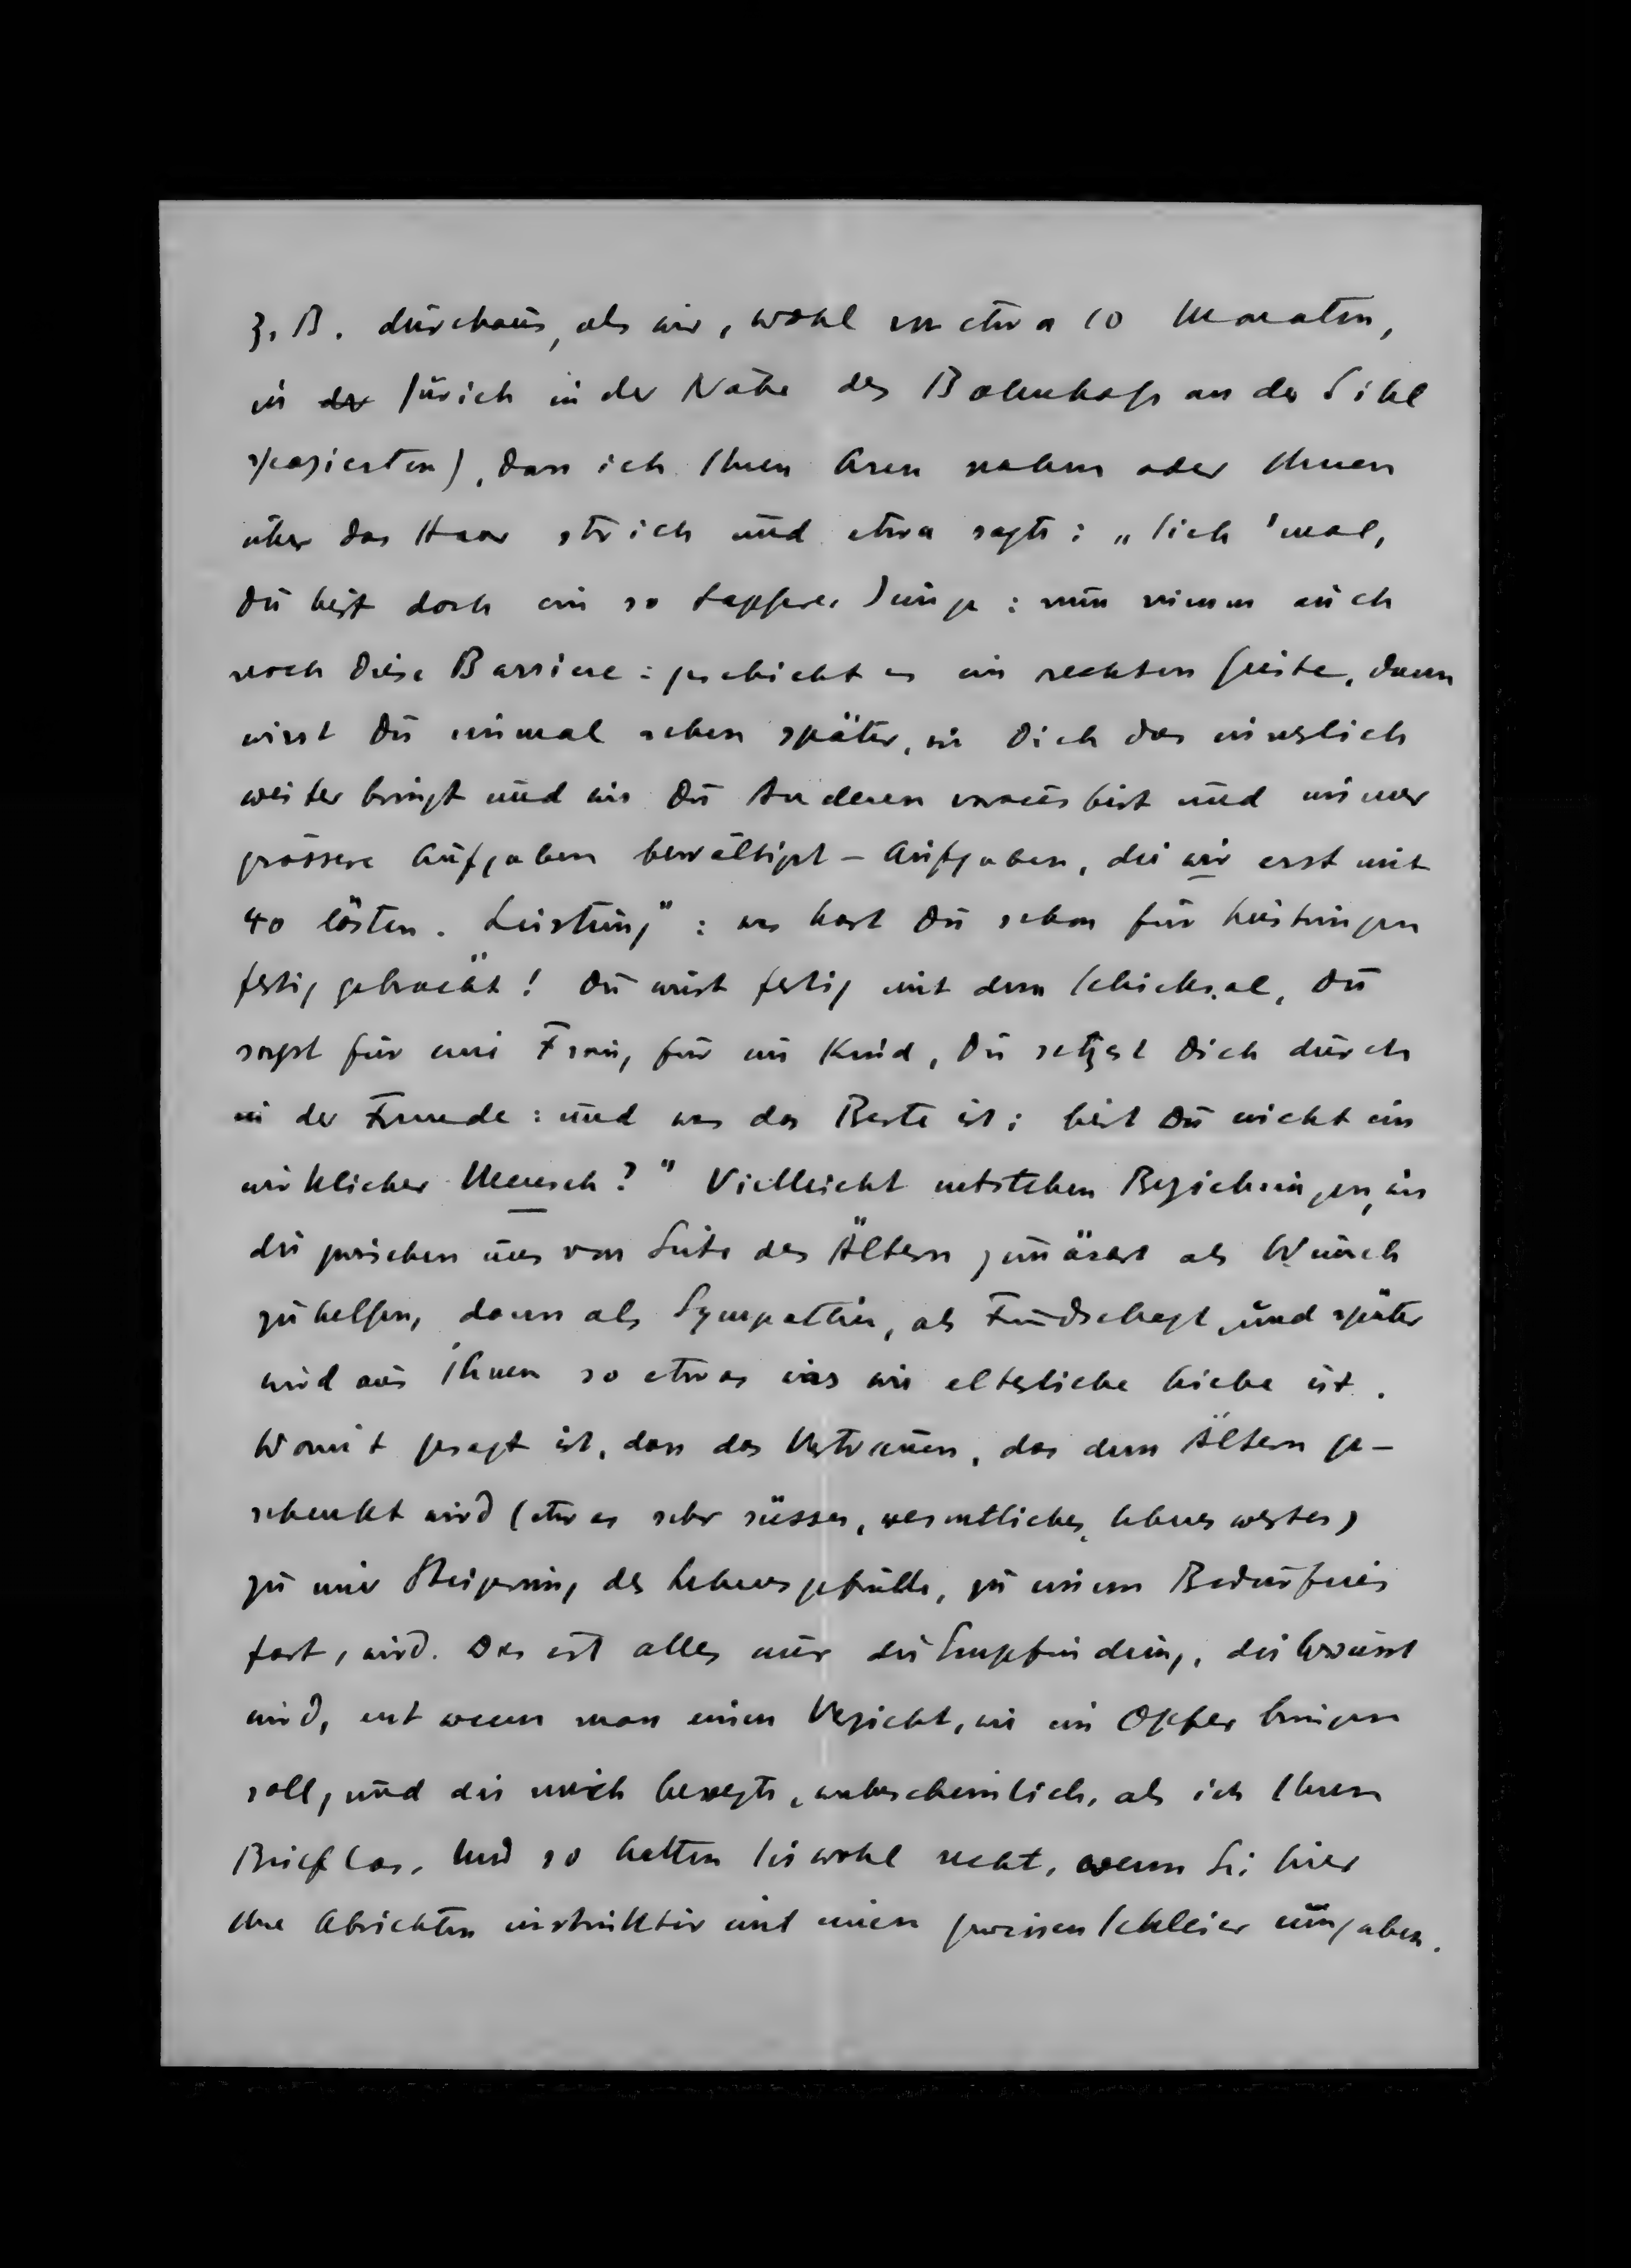 z. B. durchaus, als wir, wohl vor etwa 10 Monaten,
in der Zürich in der Nähe des Bahnhofs an der Sihl
spazierten), dass ich Ihren Arm nahm oder Ihnen
über das Haar strich und etwa sagte: „Sieh 'mal,
Du bist doch ein so tapferer Junge: nun nimm auch
noch diese Barriere: geschieht es im rechten Geiste, dann
wirst Du einmal sehen später, wie Dich das innerlich
weiter bringt und wie Du Anderen voraus bist und immer
grössere Aufgaben bewältigst – Aufgaben, die wir erst mit
40 lösten. Leistung": was hast Du schon für Leistungen
fertig gebracht! Du wirst fertig mit dem Schicksal, Du
sorgst für eine Frau, für ein Kind, Du setzest Dich durch
in der Fremde: und was das Beste ist: bist Du nicht ein
wirklicher Mensch?" Vielleicht entstehen Beziehungen, wie
die zwischen uns von Seite des Ältern zunächst als Wunsch
zu helfen, dann als Sympathie, als Freundschaft, und später
wird aus ihnen so etwas was wie elterliche Liebe ist.
Womit gesagt ist, dass das Vertrauen, das dem Ältern ge-
schenkt wird (etwas sehr süsses, wesentliches, lebenswertes)
zu einer Steigerung des Lebensgefühls, zu einem Bedürfnis
fast, wird. Das ist alles nur die Empfindung, die bewusst
wird, erst wenn man einen Verzicht, wie ein Opfer bringen
soll, und die mich bewegte, wahrscheinlich, als ich Ihren
Brief las. Und so hatten Sie wohl recht, wenn Sie hier
Ihre Absichten instinktiv mit einem gewissen Schleier umgaben.